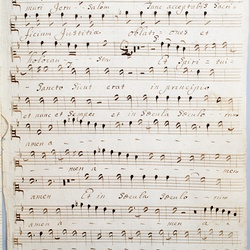 muri Jeru salem Tunc acceptabis Sacri-
ficium Justitiae oblati ones et
holocau- sta Et Spiri- tui
Sancto Sicut erat in principio
et nunc et Semper et in Saecula Saeculo rum
amen a
men a men
amen Et in Saecula Saeculo- rum
amen a men a